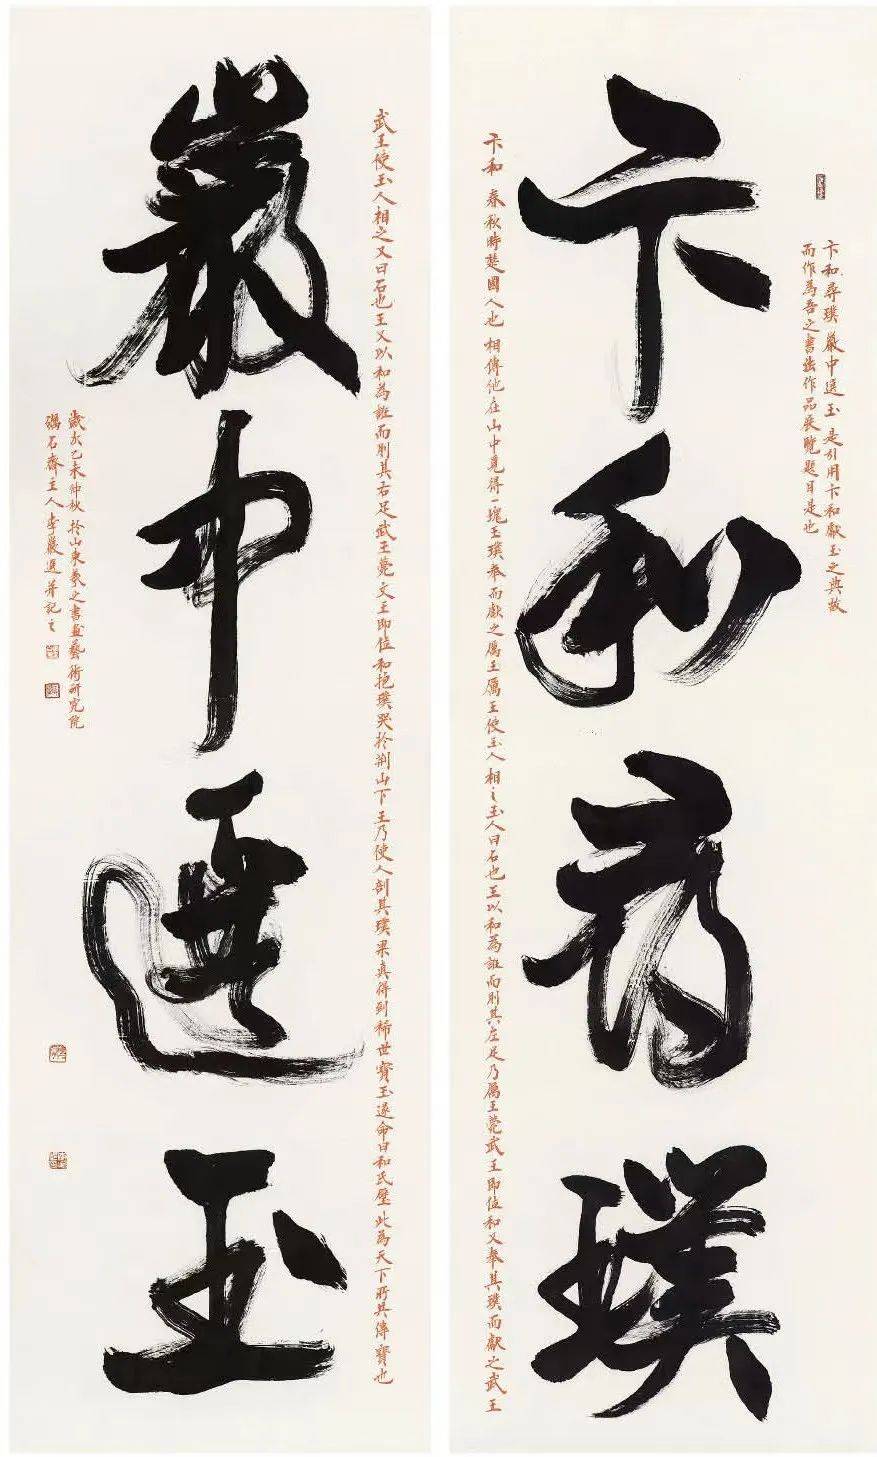 卞和尋璞
卞和尋璞巖中選玉是引用卞和獻玉之典故
而作為吾之書法作品展覽題目是也
卞和春秋時楚國人也相傳他在山中覓得一塊玉璞奉而獻之厲王厲王使玉人相之玉人曰石也王以和為誑而刖其左足乃厲王薨武王即位和又奉其璞而獻之武王
巖中選玉
武王使玉人相之又曰石也王又以和為誑而刖其右足武王薨文王即位和抱璞哭於荆山下王乃使人剖其璞果真得到稀世寶玉遂命曰和氏璧此為天下所共傳寶也
歲次乙未仲秋於山東羲之書畫藝術研究院
礪石齋主人李巖選并記之